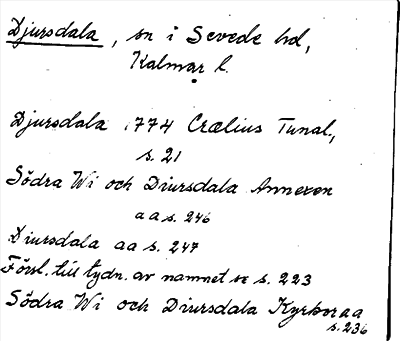 Djursdala, sn i Sevede hd,
Kalmar l.
Djursdala 1774 Crælius Tunal.,
s. 21
Södra Wi och Diursdala Annexen
a a s. 246
Diursdala aa s. 247
Försl. till tydn. av namnet se s. 223
Södra Wi och Diursdala Kyrkor aa
s. 236